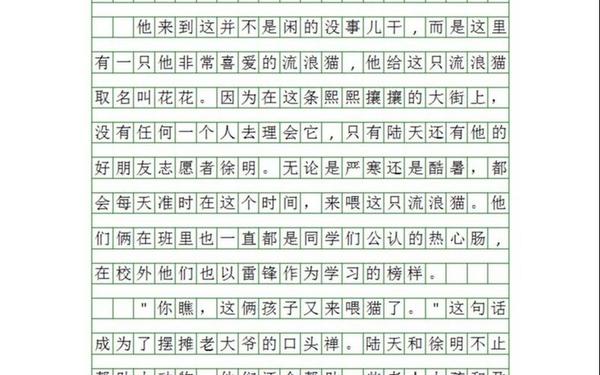 他来到这并不是闲的没事儿干,而是这里
有一只他非常喜爱的流浪猫,他给这只流浪猫
取名叫花花。因为在这条熙熙攘攘的大街上,
没有任何一个人去理会它,只有陆天还有他的
好朋友志愿者徐明。无论是严寒还是酷暑,都
会每天准时在这个时间,来喂这只流浪猫。他
们俩在班里也一直都是同学们公认的热心肠,
在校外他们也以雷锋作为学习的榜样。
"你瞧,这俩孩子又来喂猫了。"这句话
成为了摆摊老大爷的口头禅。陆天和徐明不止